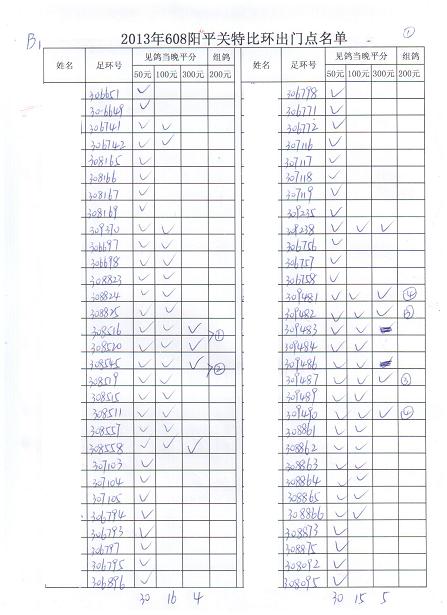 B1
2013年608阳平关特比环出门点名单
①
姓名 足环号 见鸽当晚平分 组鸽 姓名 足环号 见鸽当晚平分 组鸽
50元 100元 300元 200元 50元 100元 300元 200元
306651 ✓ 306798 ✓
306649 ✓ 306771 ✓
306741 ✓ ✓ 306772 ✓
306742 ✓ ✓ 307116 ✓
308165 ✓ 307117 ✓
308166 ✓ 307118 ✓
308167 ✓ 307119 ✓
308169 ✓ 309235 ✓
309370 ✓ ✓ 309238 ✓ ✓ ✓
306697 ✓ ✓ 306756 ✓
306698 ✓ ✓ 306757 ✓
308823 ✓ ✓ 306758 ✓
308824 ✓ ✓ 309481 ✓ ✓ ✓ ④
308825 ✓ ✓ 309482 ✓ ✓ ✓
308516 ✓ ✓ ✓ ① 309483 ✓ ✓
308520 ✓ ✓ ✓ 309484 ✓ ✓
308545 ✓ ✓ ✓ ② 309486 ✓ ✓
308519 ✓ ✓ 309487 ✓ ✓ ✓ ③
308515 ✓ ✓ 309489 ✓ ✓
308511 ✓ ✓ 309490 ✓ ✓ ✓ ④
308557 ✓ ✓ 308861 ✓ ✓
308558 ✓ ✓ ✓ 308862 ✓ ✓
307103 ✓ 308863 ✓ ✓
307104 ✓ 308864 ✓ ✓
307105 ✓ 308865 ✓ ✓
306794 ✓ 308866 ✓ ✓
306793 ✓ 308873 ✓
306797 ✓ 308875 ✓
306795 ✓ 308092 ✓
306896 ✓ 308095 ✓
30 16 4 30 15 5